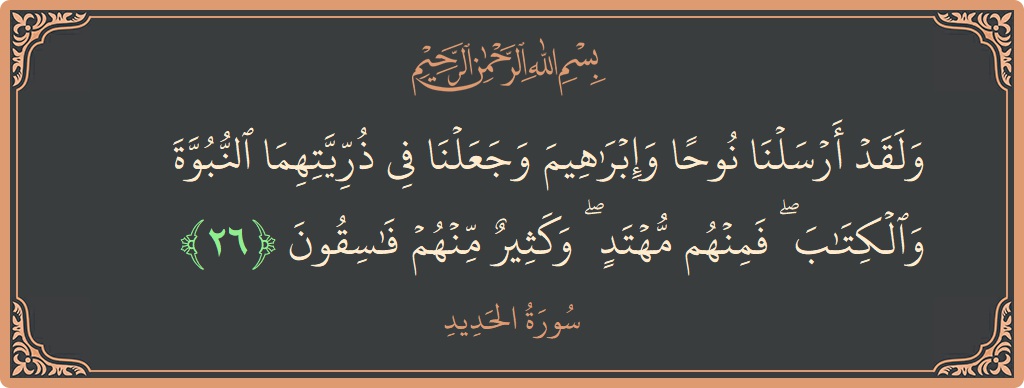 بِسْمِ اللَّهِ الرَّحْمَٰنِ الرَّحِيمِ
وَلَقَدۡ أَرۡسَلۡنَا نُوحًا وَإِبۡرَٰهِيمَ وَجَعَلۡنَا فِي ذُرِّيَّتِهِمَا ٱلنُّبُوَّةَ
وَٱلۡكِتَٰبَۖ فَمِنۡهُم مُّهۡتَدٖۖ وَكَثِيرٞ مِّنۡهُمۡ فَٰسِقُونَ ﴿٢٦﴾
سُورَةُ الحَدِيدِ